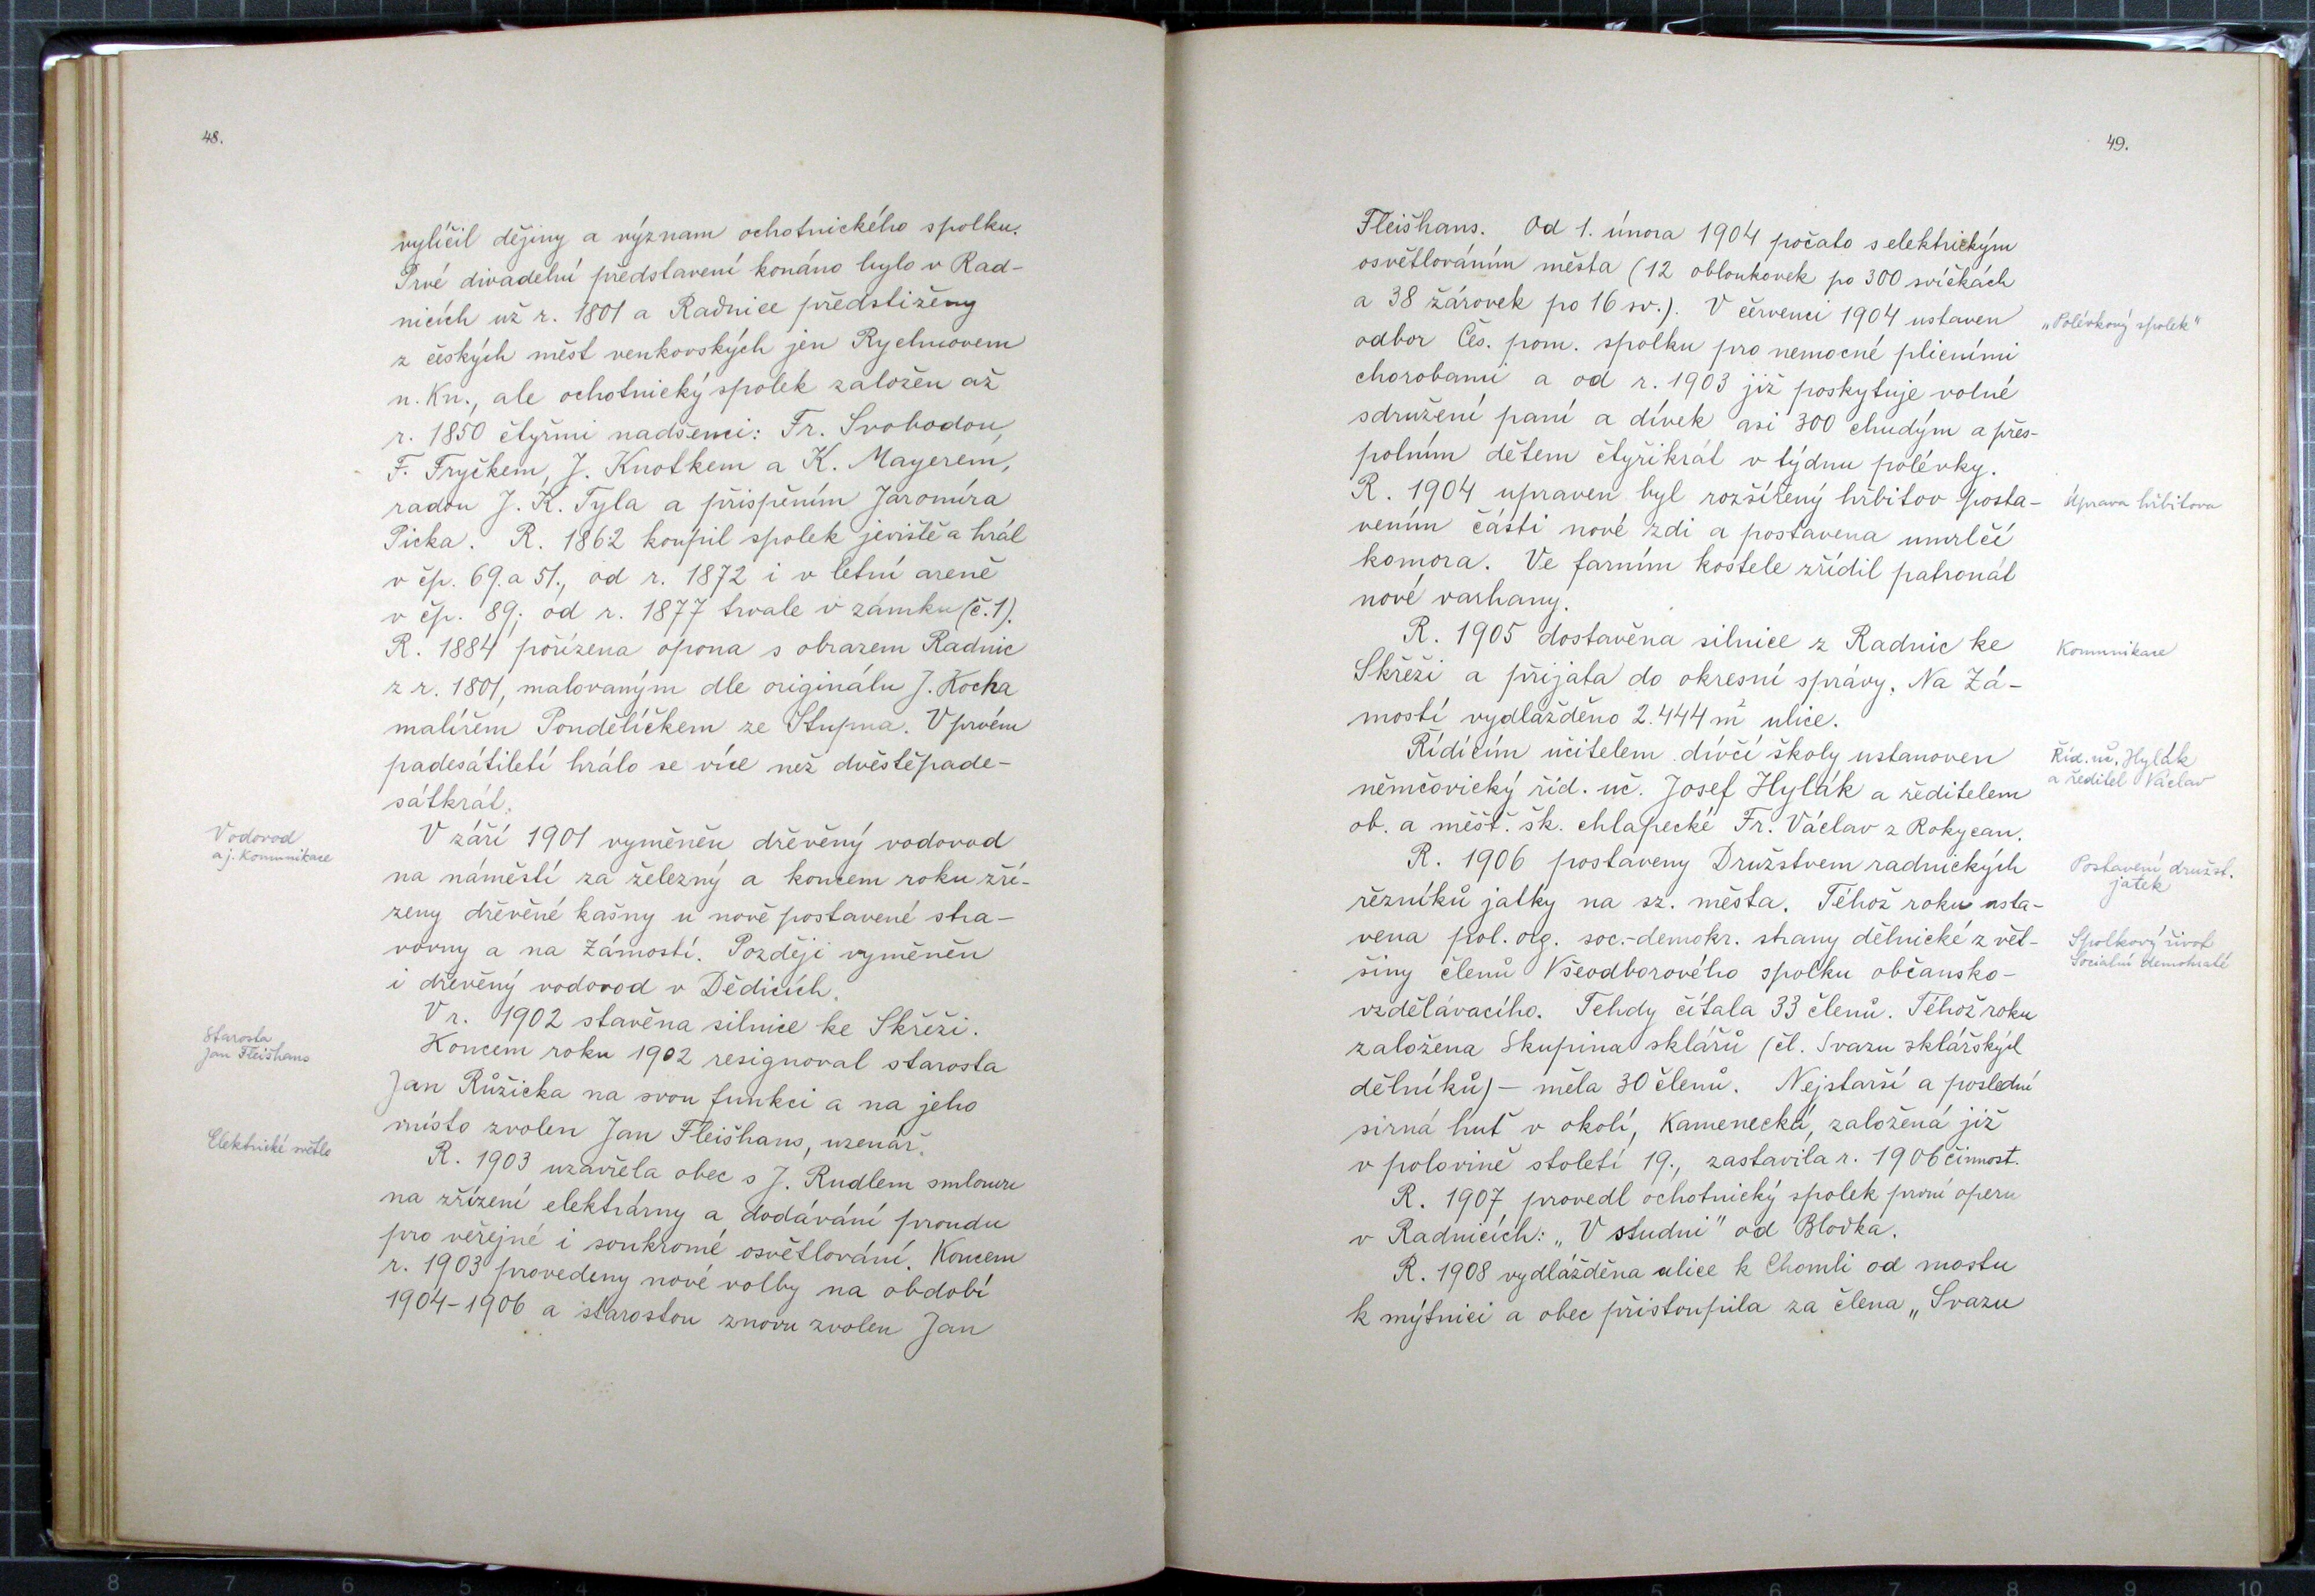 48.
vylíčil dějiny a význam ochotnického spolku.
Prvé divadelní představení konáno bylo v Rad-
nicích už r. 1801 a Radnice předstiženy
z českých měst venkovských jen Rychnovem
n. Kn., ale ochotnický spolek založen až
r. 1850 čtyřmi nadšenci: Fr. Svobodou,
F. Fryčkem, J. Knotkem a K. Mayerem,
radou J. K. Tyla a přispěním Jaromíra
Picka. R. 1862 koupil spolek jeviště a hrál
v čp. 69. a 51., od r. 1872 i v letní areně
v čp. 89; od r. 1877 trvale v zámku (č. 1).
R. 1884 pořízena opona s obrazem Radnic
z r. 1801, malovaným dle originálu J. Kocha
malířem Pondělíčkem ze Stupna. V prvém
padesátiletí hrálo se více než dvěstěpade-
sátkrát.
Vodovod
a j. Komunikace
V září 1901 vyměněn dřevěný vodovod
na náměstí za železný a koncem roku zří-
zeny dřevěné kašny u nově postavené sta-
rovny a na Zámostí. Později vyměněn
i dřevěný vodovod v Dědicích.
V r. 1902 stavěna silnice ke Skřeži.
Starosta
Jan Fleišhans
Koncem roku 1902 resignoval starosta
Jan Růžicka na svou funkci a na jeho
místo zvolen Jan Fleišhans, uzenář.
Elektrické světlo
R. 1903 uzavřela obec s J. Rudlem smlouvu
na zřízení elektrárny a dodávání proudu
pro veřejné i soukromé osvětlování. Koncem
r. 1903 provedeny nové volby na období
1904-1906 a starostou znovu zvolen Jan
49.
Fleišhans. Od 1. února 1904 počato s elektrickým
osvětlováním města (12 obloukovek po 300 svíčkách
a 38 žárovek po 16 sv.). V červenci 1904 ustaven
„Polévkový spolek"
odbor Čes. pom. spolku pro nemocné plicními
chorobami a od r. 1903 již poskytuje volné
sdružení paní a dívek asi 300 chudým a přes-
polním dětem čtyřikrát v týdnu polévky.
R. 1904 upraven byl rozšířený hřbitov posta-
Úprava hřbitova
vením části nové zdi a postavena umrlčí
komora. Ve farním kostele zřídil patronát
nové varhany.
R. 1905 dostavěna silnice z Radnic ke
Komunikace
Skřeži a přijata do okresní správy. Na Zá-
mostí vydlážděno 2.444 m² ulice.
Řídícím učitelem dívčí školy ustanoven
Říd. uč. Hylák
a ředitel Václav
němčovický říd. uč. Josef Hylák a ředitelem
ob. a měšť. šk. chlapecké Fr. Václav z Rokycan.
R. 1906 postaveny Družstvem radnických
Postavení družst.
jatek
řezníků jatky na sz. města. Téhož roku usta-
vena pol. org. soc.-demokr. strany dělnické z vět-
Spolkový život
Socialní demokraté
šiny členů Všeodborového spolku občansko-
vzdělávacího. Tehdy čítala 33 členů. Téhož roku
založena Skupina sklářů (čl. Svazu sklářských
dělníků) – měla 30 členů. Nejstarší a poslední
sirná huť v okolí, Kamenecká, založená již
v polovině století 19., zastavila r. 1906 činnost.
R. 1907 provedl ochotnický spolek první operu
v Radnicích: „V studni" od Blodka.
R. 1908 vydlážděna ulice k Chomli od mostu
k mýtnici a obec přistoupila za člena „Svazu